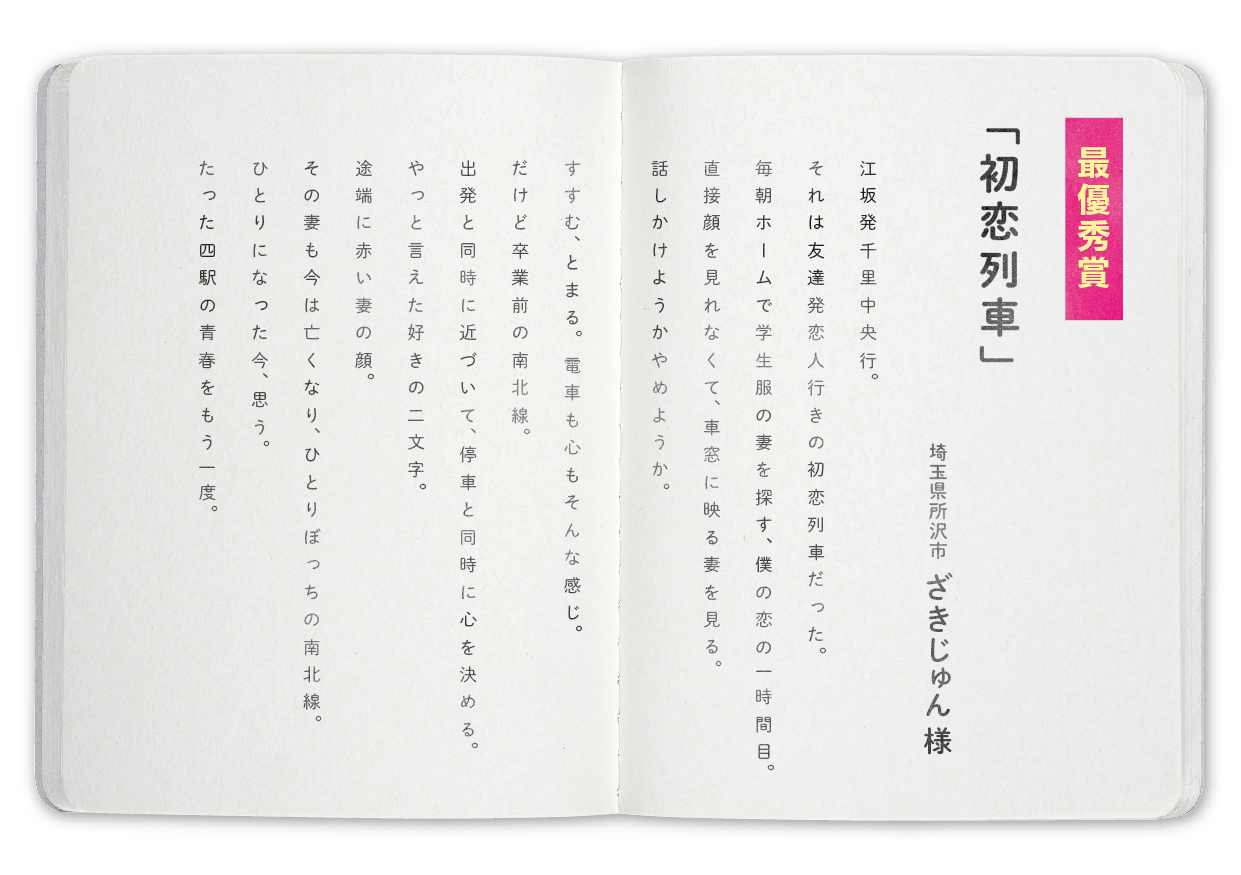 最優秀賞
「初恋列車」
埼玉県所沢市 ざきじゅん 様
江坂発千里中央行。
それは友達発恋人行きの初恋列車だった。
毎朝ホームで学生服の妻を探す、僕の恋の一時間目。
直接顔を見れなくて、車窓に映る妻を見る。
話しかけようかやめようか。
すすむ、とまる。電車も心もそんな感じ。
だけど卒業前の南北線。
出発と同時に近づいて、停車と同時に心を決める。
やっと言えた好きの二文字。
途端に赤い妻の顔。
その妻も今は亡くなり、ひとりぼっちの南北線。
ひとりになった今、思う。
たった四駅の青春をもう一度。